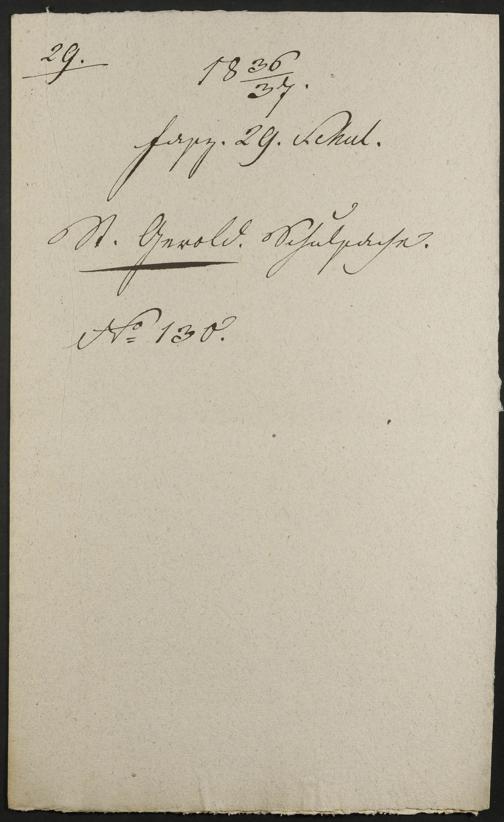 29.
18 36/37.
fasz. 29. Schul.
St. Gerold. Schulsache.
No 130.